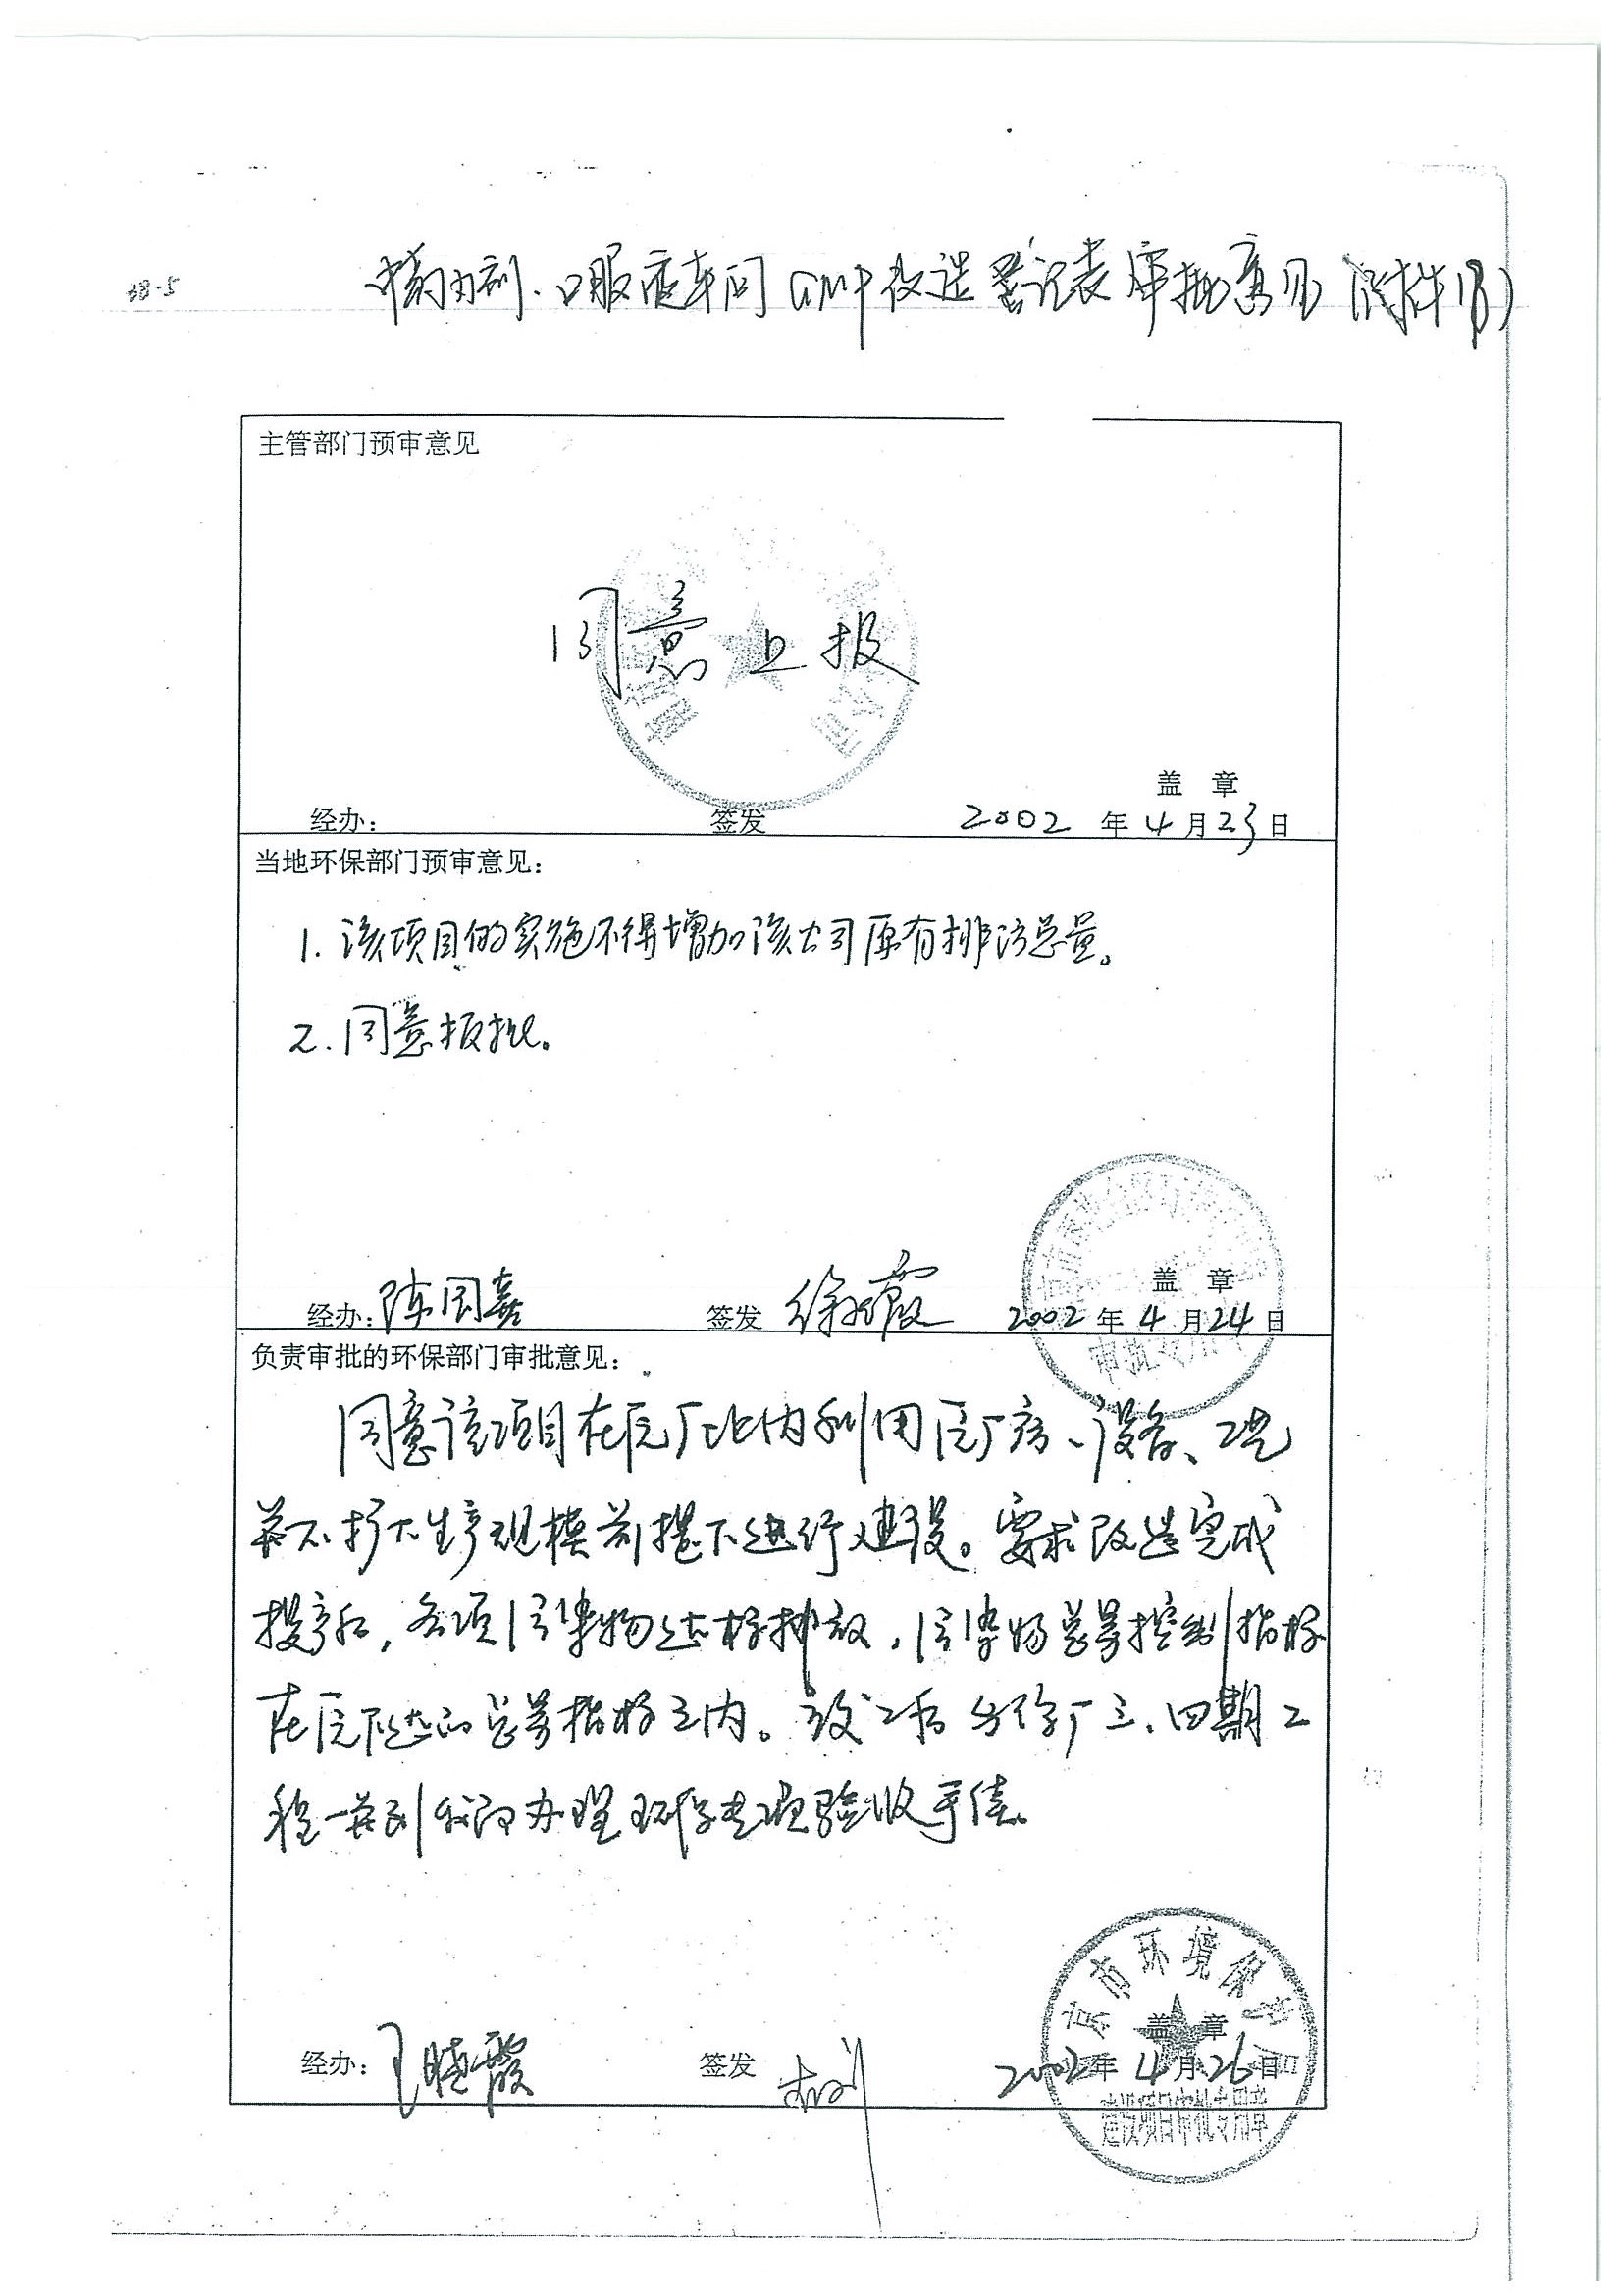 38-5
口服液车间GMP改造登记表审批意见(附件
主管部门预审意见
同意上报
盖 章
经办: 签发 2002 年 4 月 23 日
当地环保部门预审意见:
1. 该项目的实施不得增加该公司原有排污总量。
2. 同意报批。
盖 章
经办: 陈国嘉 签发 徐 霞 2002 年 4 月 24 日
审批专用章
负责审批的环保部门审批意见:
同意该项目在原厂址内利用原厂房、设备、工艺
并不扩大生产规模前提下进行建设。要求改造完成
投产后,各项污染物达标排放,污染物总量控制指标
在原下达的总量指标之内。竣工后 厂三、四期工
程一并到我局办理环保专项验收手续。
京市环境保
盖 章
经办: 王晓霞 签发 2002 年 4 月 26 日
建设项目审批专用章